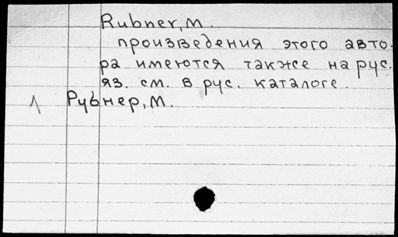 Rubner, M.
произведения этого авто-
ра имеются также на рус.
яз. см. в рус. каталоге.
Рубнер, М.